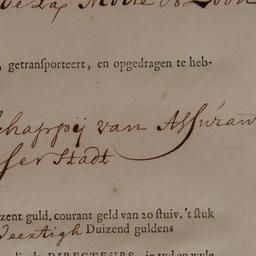 , getranſporteert, en opgedragen te heb-
chappij van Aſſuran
ſer Stadt
zent guld. courant geld van 20 ſtuiv. 't ſtuk
Veertigh Duizend guldens
DIRECTEURS, in tyd en wyle